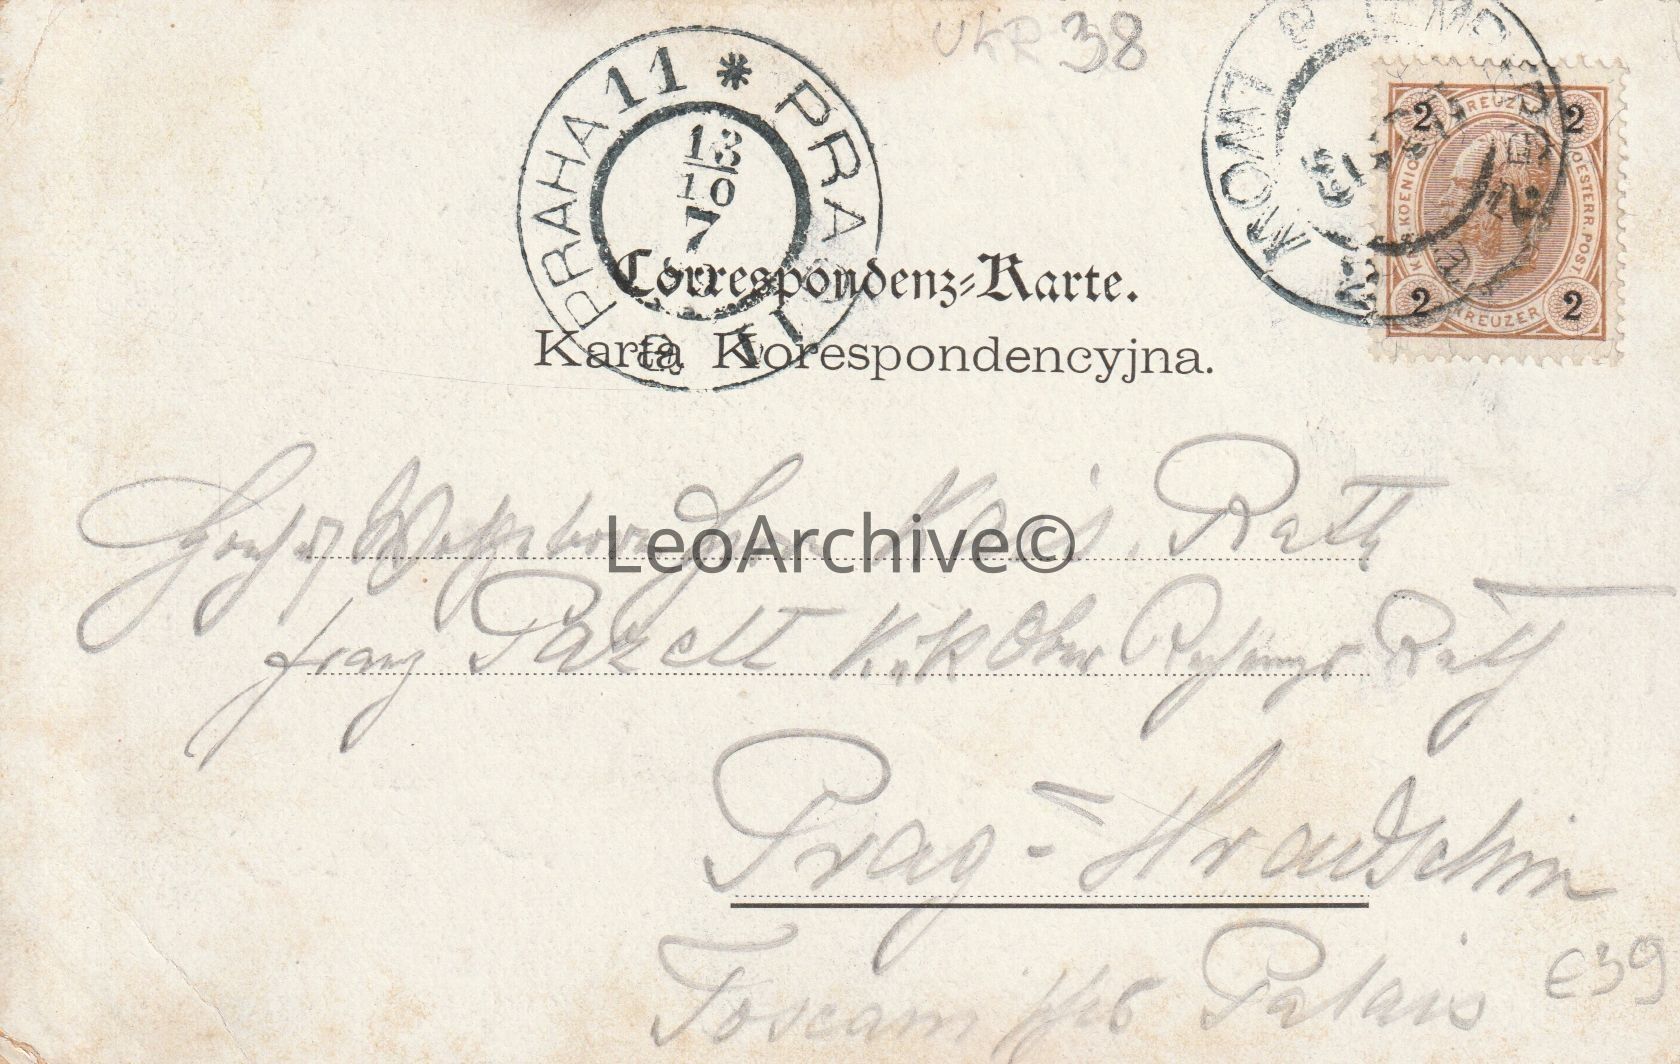 UKR 38
PRAHA 11 * PRAG
13
10
7
2 KREUZER 2
OESTERR. POST
2 KREUZER 2
Correspondenz-Karte.
Karta Korespondencyjna.
LeoArchive©
Kais. Rath
Franz Pazelt K. u K Ober Rechnungs Rath
Prag - Hradschin
Toscanisches Palais
€39